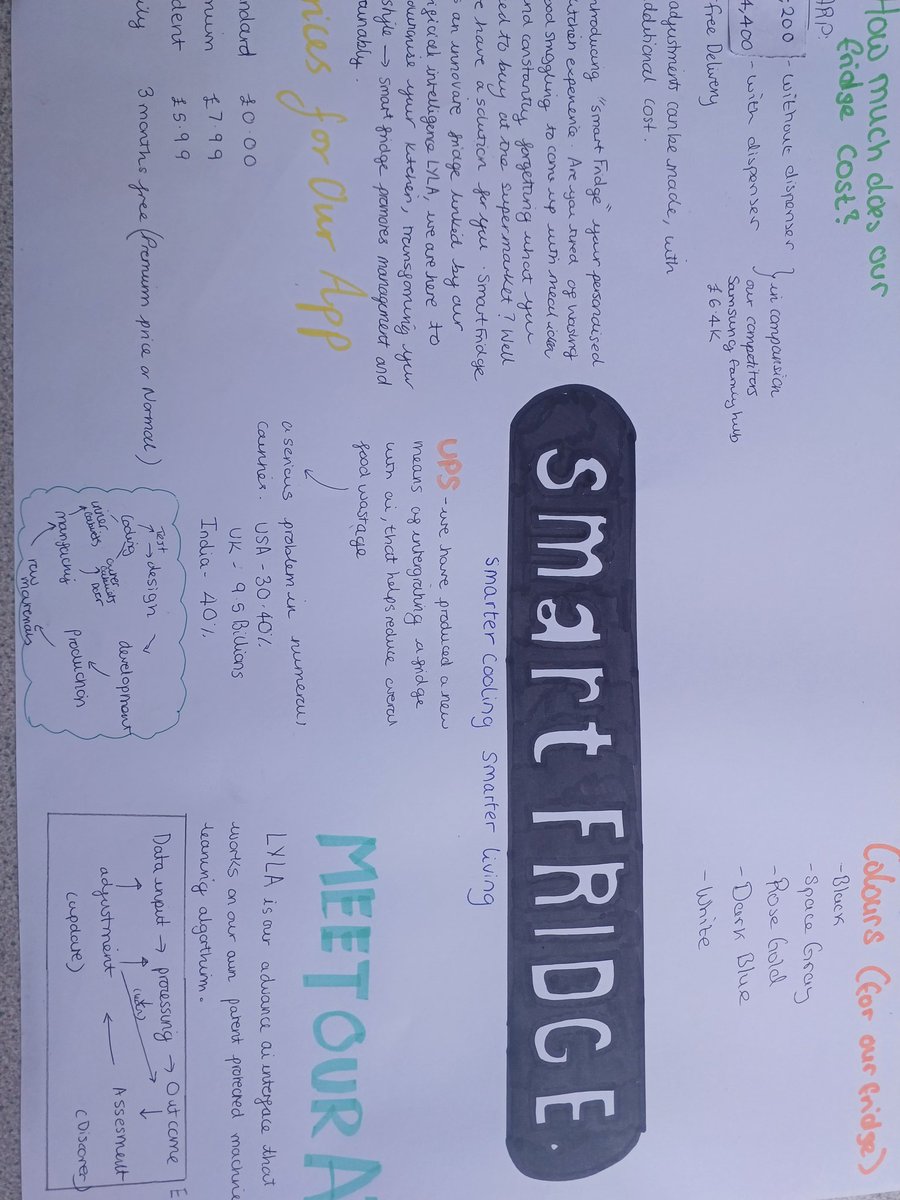 How much does our
fridge cost?
200 - without dispenser
4,400 - with dispenser
} in comparision
our competitors
Samsung family hub
£6.4K
free Delivery
adjustments can be made, with
additional cost.
Colours (for our fridge)
- Black
- Space Gray
- Rose Gold
- Dark Blue
- White
Smart FRIDGE.
Smarter cooling Smarter living
introducing "Smart Fridge" your personalised
kitchen experience. Are you tired of wasting
food struggling to come up with meal ideas
and constantly forgetting what you
need to buy at the supermarket? Well
we have a solution for you. Smart Fridge
an innovare fridge linked by our
artificial intelligence LYLA, we are here to
your kitchen, transforming your
style → Smart fridge promotes management and
prices for our App
£0.00
£7.99
£5.99
3 months free (Premium price or Normal)
UPS - we have produced a new
means of intergrating a fridge
with ai, that helps reduce overall
food wastage
a serious problem in numerous
countries. USA - 30-40%
UK - 9.5 Billions
India - 40%
Test → design
coding
development
production
raw materials
MEET OUR A
LYLA is our advance ai interface that
works on our own patent protected machine
learning algorithim.
Data input → processing → Outcome
adjustment ← Assesment
(update) (Discover)